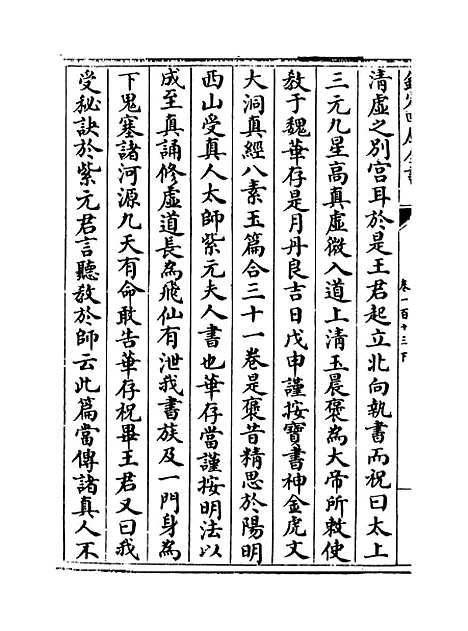 欽定四庫全書
卷一百十三下
清虛之別宫耳於是王君起立北向執書而祝曰太上
三元九星髙真虛微入道上清玉晨褒為大帝所敕使
教于魏華存是月丹良吉日戊申謹按寶書神金虎文
大洞真經八素玉篇合三十一卷是褒昔精思於陽明
西山受真人太師紫元夫人書也華存當謹按明法以
成至真誦修虛道長為飛仙有泄我書族及一門身為
下鬼塞諸河源九天有命敢告華存祝畢王君又曰我
受秘訣於紫元君言聽教於師云此篇當傳諸真人不